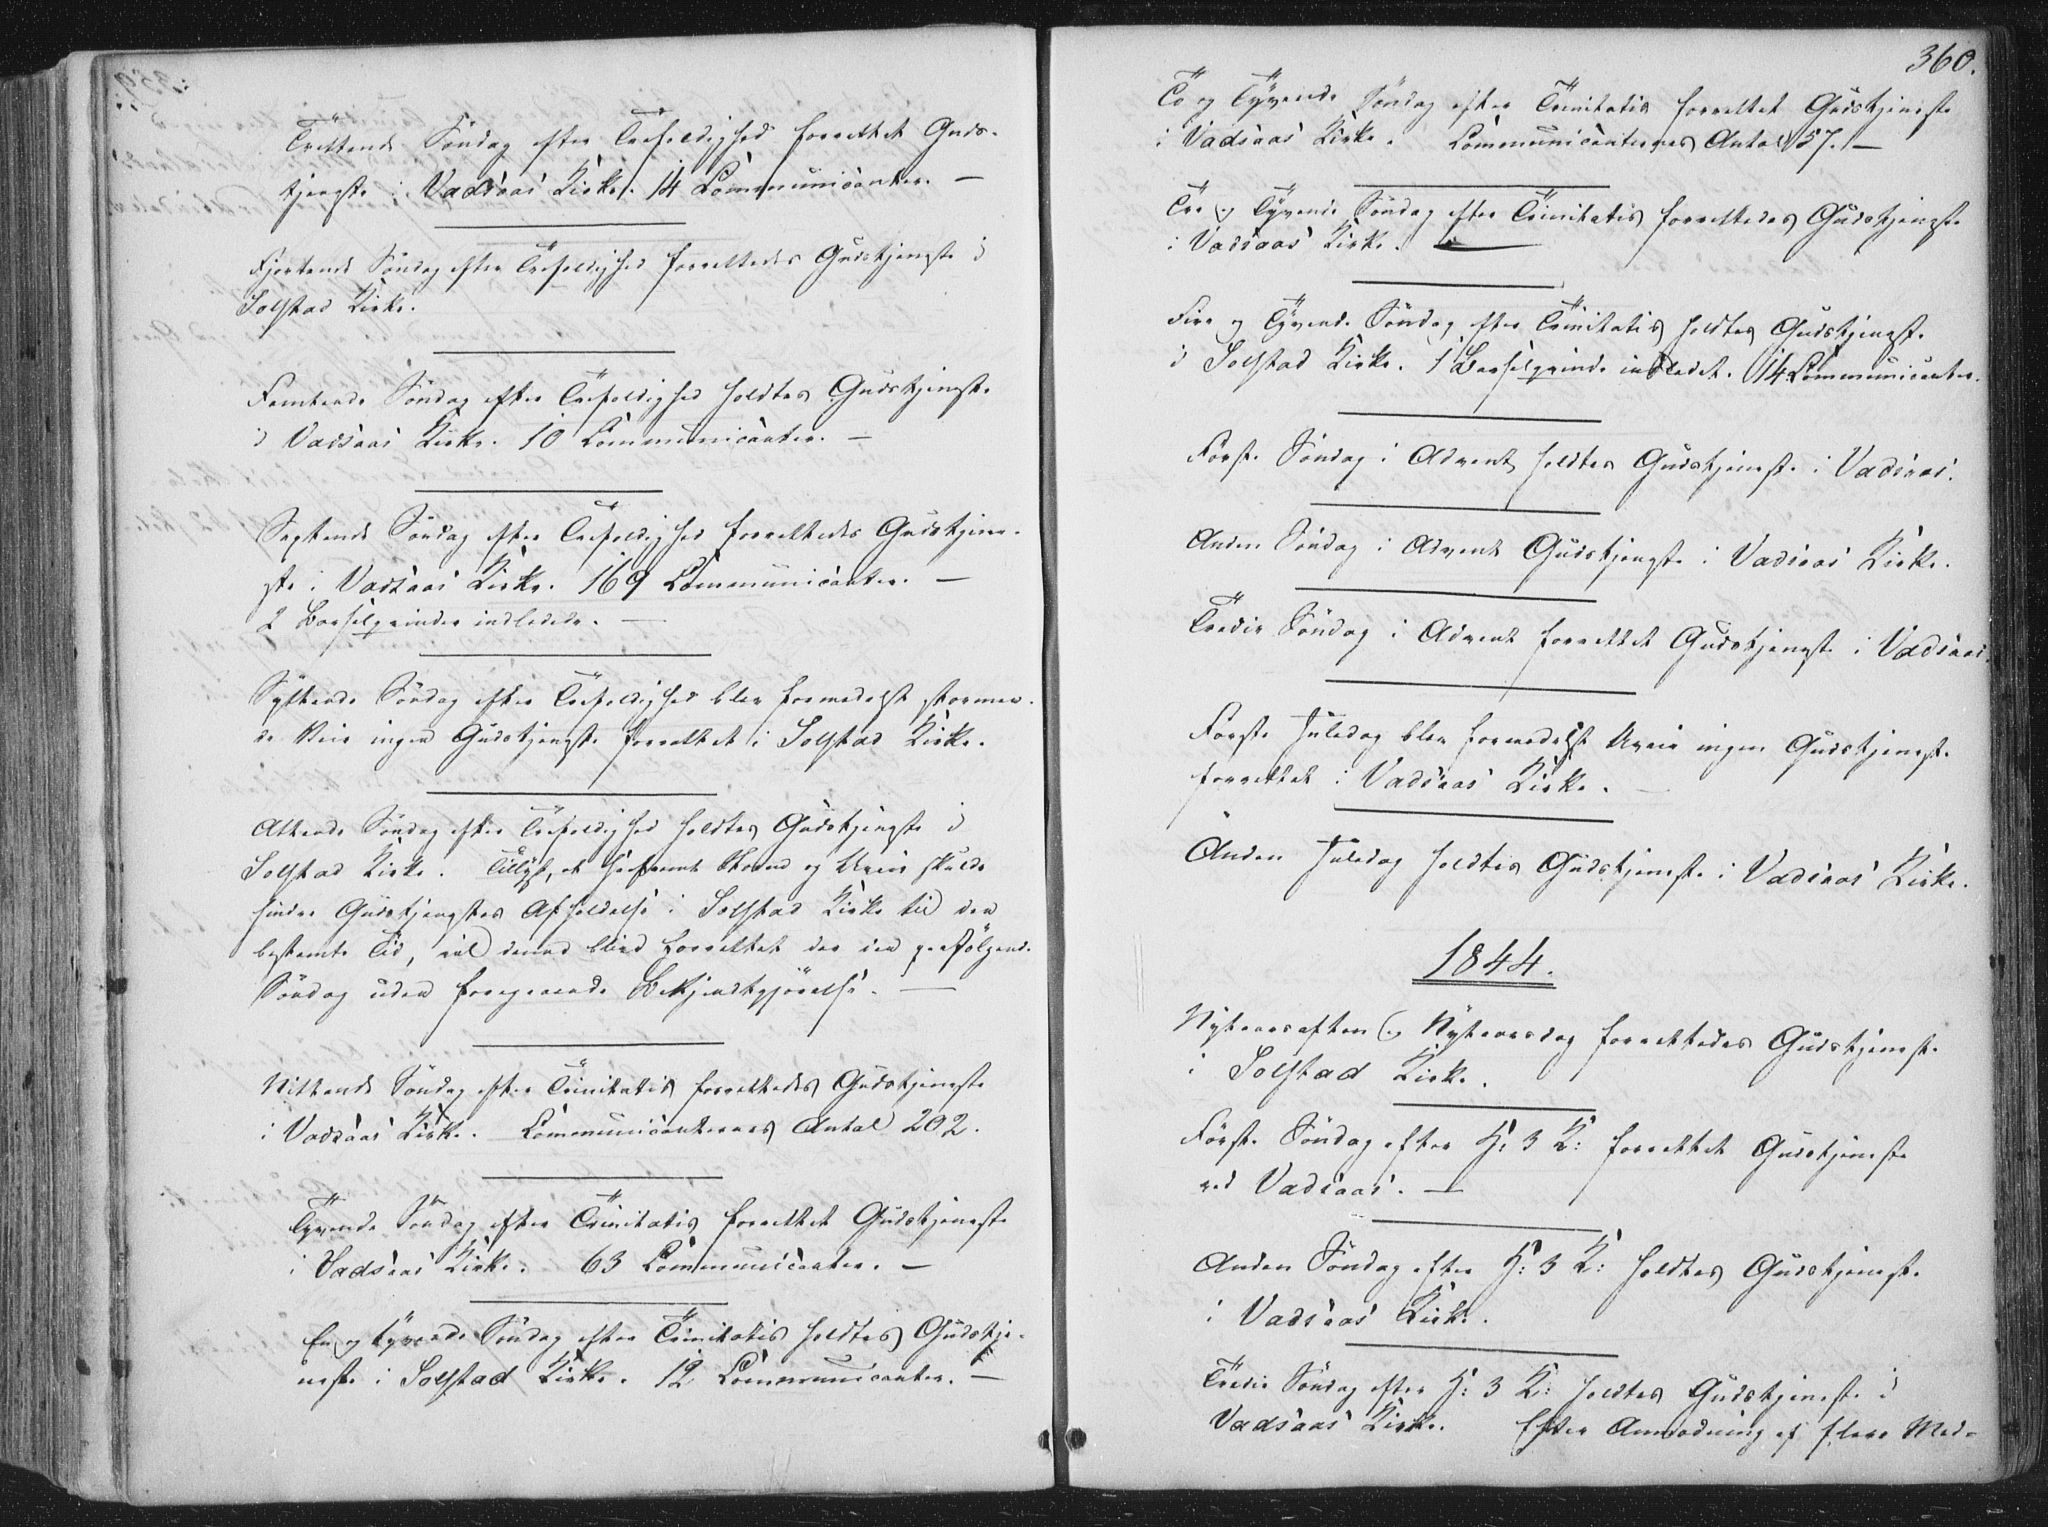 Trettende Søndag efter Trefoldighed forrettet Guds-
tjeneste i Vadsaas Kirke. 14 Communicanter. —
Fjortende Søndag efter Trefoldighed forrettedes Gudstjeneste i
Solstad Kirke.
Femtende Søndag efter Trefoldighed holdtes Gudstjeneste
i Vadsaas Kirke. 10 Communicanter. —
Sextende Søndag efter Trefoldighed forrettedes Gudstjene-
ste i Vadsaas Kirke. 169 Communicanter. —
2 Barselqvinder indledede. —
Syttende Søndag efter Trefoldighed blev formedelst stormen-
de Veir ingen Gudstjeneste forrettet i Solstad Kirke.
Attende Søndag efter Trefoldighed holdtes Gudstjeneste i
Solstad Kirke. Tillyst, at saafremt Storm og Uveir skulde
hindre Gudstjenestes Afholdelse i Solstad Kirke til den
bestemte Tid, vil denne blive forrettet der den paafølgende
Søndag uden foregaaende Bekjendtgjørelse. —
Nittende Søndag efter Trinitatis forrettedes Gudstjeneste
i Vadsaas Kirke. Communicanternes Antal 202.
Tyvende Søndag efter Trinitatis forrettet Gudstjeneste
i Vadsaas Kirke. 63 Communicanter. —
En og tyvende Søndag efter Trinitatis holdtes Gudstje-
neste i Solstad Kirke. 12 Communicanter. —
360.
To og Tyvende Søndag efter Trinitatis forrettet Gudstjeneste
i Vadsaas Kirke. Communicanternes Antal 57. —
Tre og Tyvende Søndag efter Trinitatis forrettedes Gudstjeneste
i Vadsaas Kirke. —
Fire og Tyvende Søndag efter Trinitatis holdtes Gudstjeneste
i Solstad Kirke. 1 Barselqvinde indledet. 14 Communicanter.
Første Søndag i Advent holdtes Gudstjeneste i Vadsaas.
Anden Søndag i Advent Gudstjeneste i Vadsaas Kirke.
Tredie Søndag i Advent forrettet Gudstjeneste i Vadsaas.
Første Juledag blev formedelst Uveir ingen Gudstjeneste
forrettet i Vadsaas Kirke. —
Anden Juledag holdtes Gudstjeneste i Vadsaas Kirke.
1844.
Nytaarsaften og Nytaarsdag forrettedes Gudstjeneste
i Solstad Kirke.
Første Søndag efter H: 3 K: forrettet Gudstjeneste
ved Vadsaas. —
Anden Søndag efter H: 3 K: holdtes Gudstjeneste
i Vadsaas Kirke.
Tredie Søndag efter H: 3 K: holdtes Gudstjeneste i
Vadsaas Kirke. Efter Anmodning af flere Med-